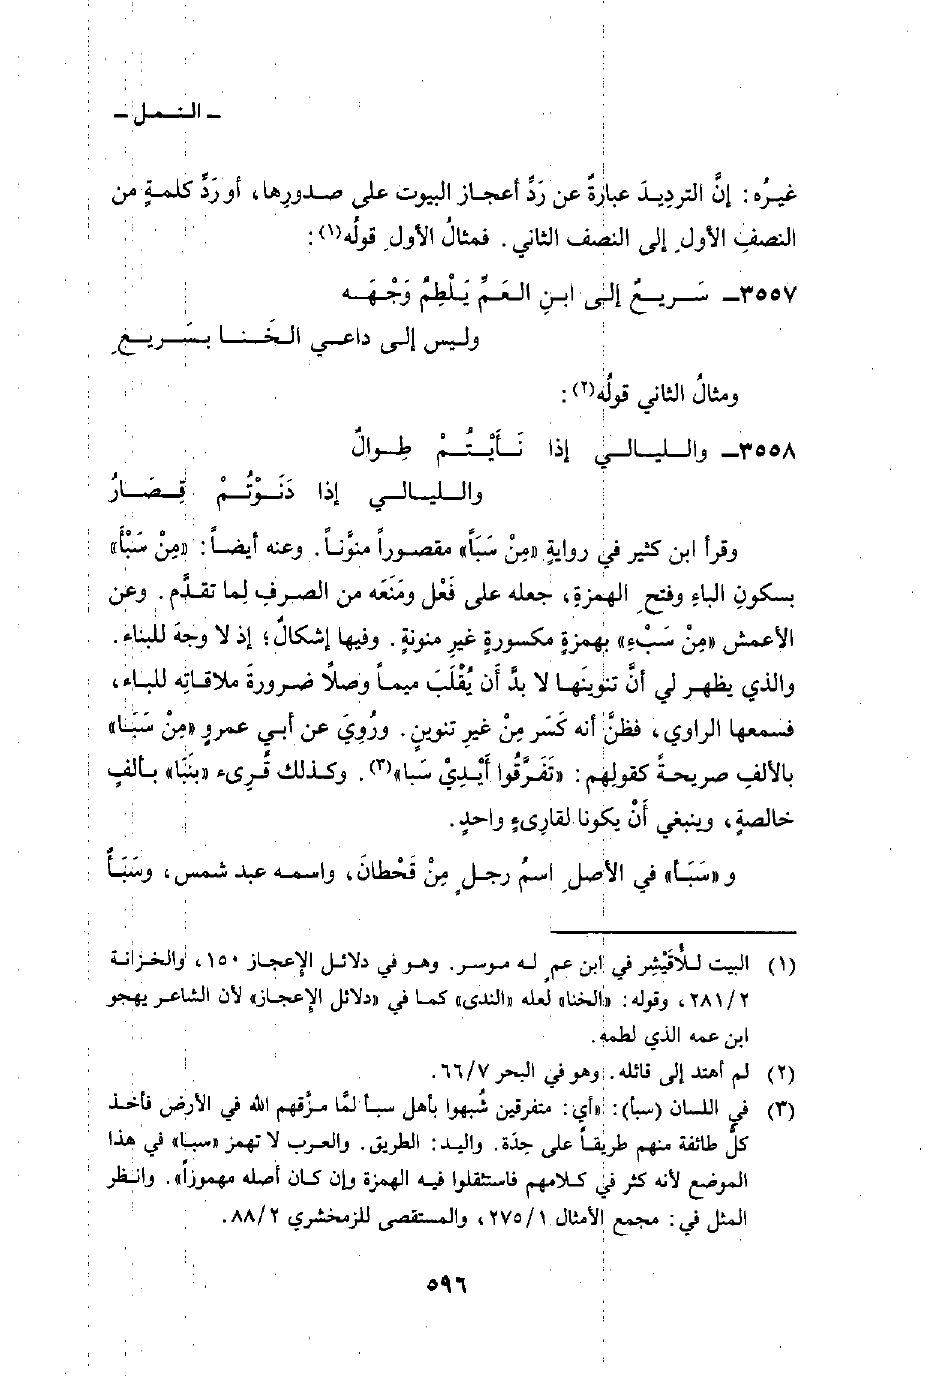 ـ النـمـل ـ
غيرُه: إنَّ الترديدَ عبارةٌ عن رَدِّ أعجاز البيوت على صدورها، أو رَدِّ كلمةٍ من
النصفِ الأولِ إلى النصف الثاني. فمثالُ الأولِ قولُه(١):
٣٥٥٧ـ سَـريـعٌ إلى ابـنِ العَـمِّ يَـلْطِمُ وَجْهَـه
ولـيس إلى داعـي الـخَـنـا بـسَـريـعِ
ومثالُ الثاني قولُه(٢):
٣٥٥٨ـ والـلـيـالـي إذا نَـأَيْـتُـمْ طِـوالٌ
والـلـيـالـي إذا دَنَـوْتُـمْ قِـصَـارُ
وقرأ ابن كثير في روايةٍ «مِنْ سَبَاً» مقصوراً منوَّناً. وعنه أيضاً: «مِنْ سَبْأَ»
بسكونِ الباءِ وفتحِ الهمزةِ، جعله على فَعْل ومَنَعَه من الصرفِ لِما تقدَّم. وعن
الأعمش «مِنْ سَبْءِ» بهمزةٍ مكسورةٍ غيرِ منونةٍ. وفيها إشكالٌ؛ إذ لا وجهَ للبناء.
والذي يظهر لي أنَّ تنوينَها لا بدَّ أن يُقْلَبَ ميماً وصلاً ضرورةَ ملاقاتِه للباء،
فسمعها الراوي، فظنَّ أنه كَسَر مِنْ غيرِ تنوين. ورُوِيَ عن أبي عمروٍ «مِنْ سَبَا»
بالألفِ صريحةً كقولهم: «تَفَرَّقُوا أَيْدِيْ سَبا»(٣). وكذلك قُرِىء «بنَبَا» بألفٍ
خالصةٍ، وينبغي أَنْ يكونا لقارىءٍ واحدٍ.
و «سَبَأ» في الأصلِ اسمُ رجلٍ مِنْ قَحْطانَ، واسمه عبد شمس، وسَبَأٌ
(١) البيت للأُقَيْشِر في ابن عمٍ له موسر. وهو في دلائل الإعجاز ١٥٠، والخزانة
٢٨١/٢، وقوله: «الخنا» لعله «الندى» كما في «دلائل الإعجاز» لأن الشاعر يهجو
ابن عمه الذي لطمه.
(٢) لم أهتد إلى قائله. وهو في البحر ٦٦/٧.
(٣) في اللسان (سبأ): «أي: متفرقين شُبهوا بأهل سبأ لمَّا مزَّقهم الله في الأرض فأخذ
كلُّ طائفة منهم طريقاً على حِدَة. واليد: الطريق. والعرب لا تهمز «سبا» في هذا
الموضع لأنه كثر في كلامهم فاستثقلوا فيه الهمزة وإن كان أصله مهموزاً». وانظر
المثل في: مجمع الأمثال ٢٧٥/١، والمستقصى للزمخشري ٨٨/٢.
٥٩٦